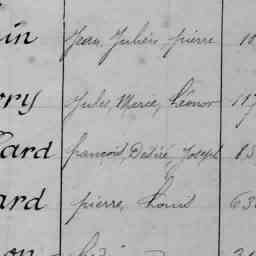 in Jean, Julien pierre 10
rry Jules, Marie, Léonor 117
lard françois, Désiré, Joseph 85
ard pierre, Louis 63
on